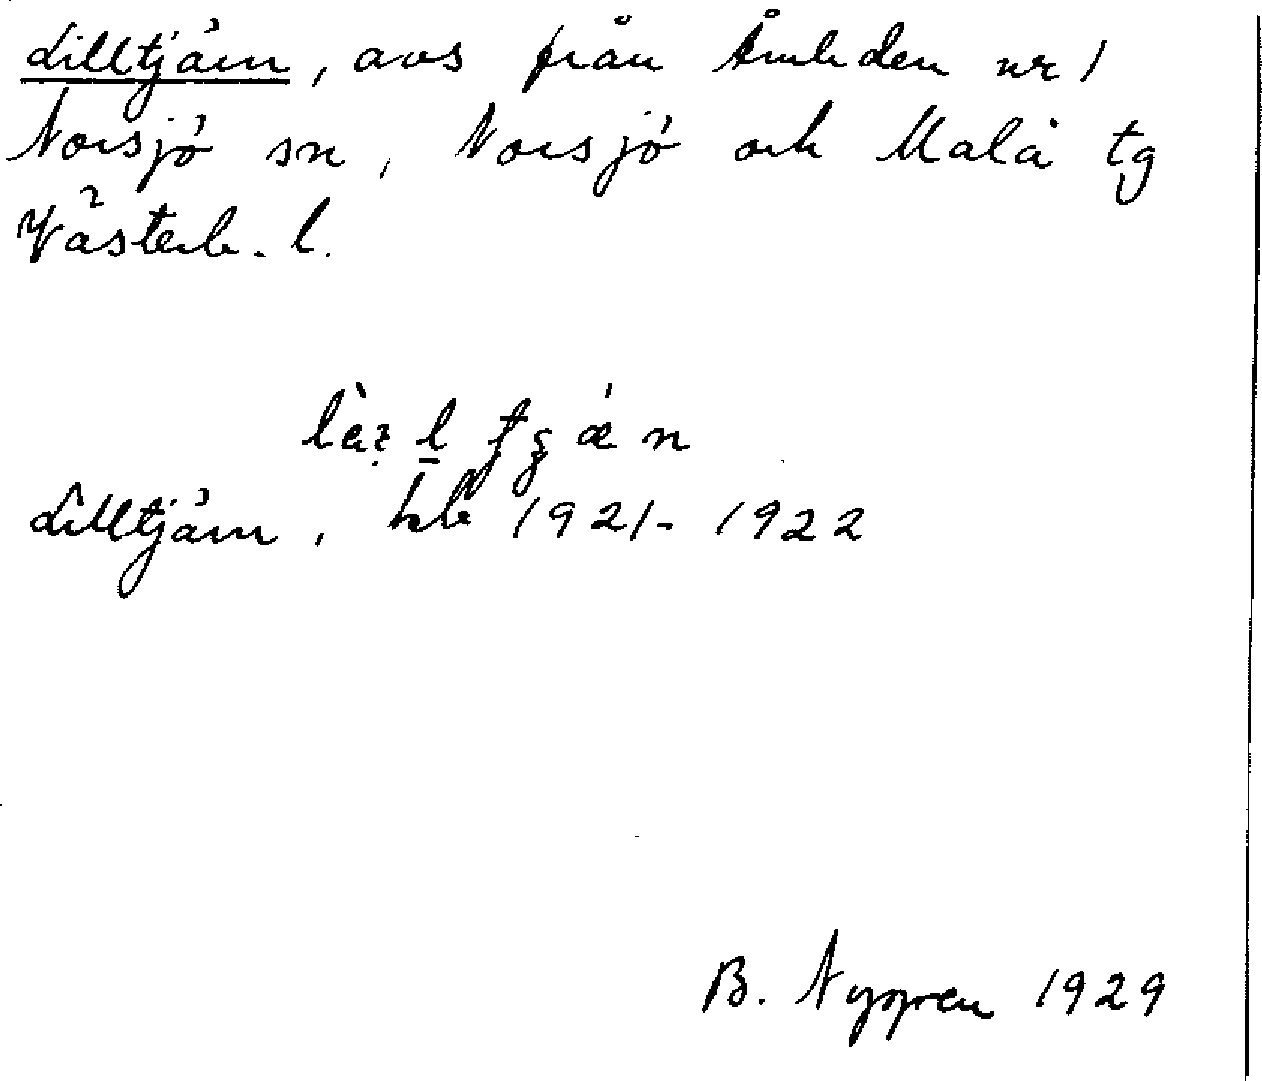 Lilltjärn, avs från Åmliden nr 1
Norsjö sn, Norsjö och Malå tg
Västerb. l.
Lilltjärn, hlb 1921-1922
B. Nygren 1929